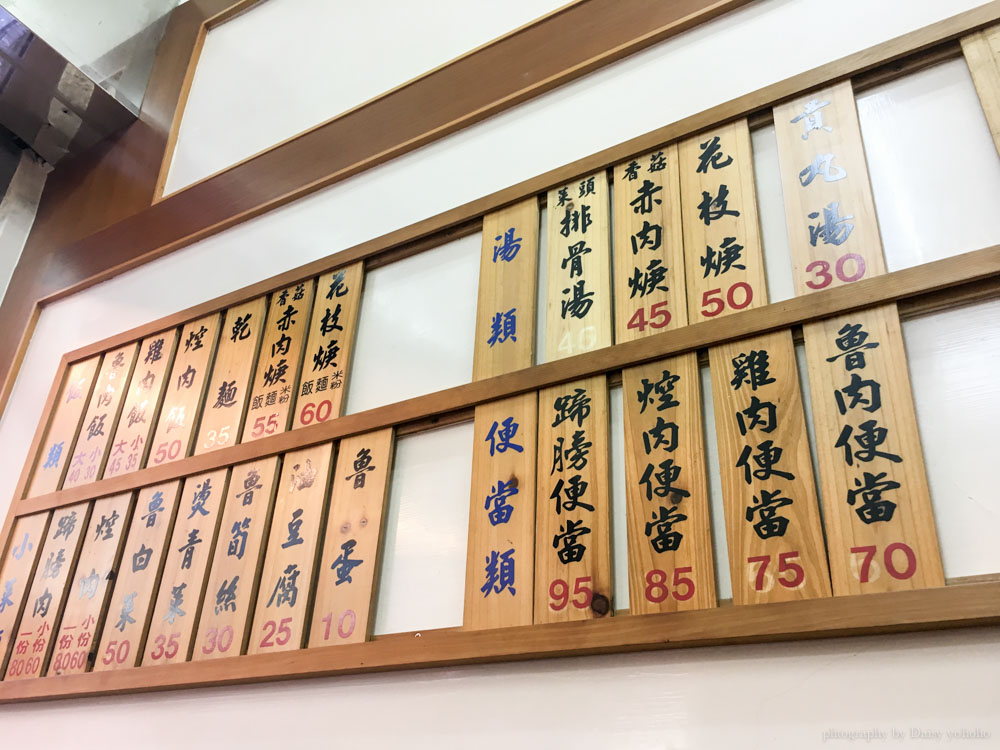 飯類
魯肉飯 大40 小30
雞肉飯 大45 小35
焢肉飯 50
乾麵 35
香菇赤肉焿 飯麵米粉 55
花枝焿 飯麵米粉 60
湯類
菜頭排骨湯 40
香菇赤肉焿 45
花枝焿 50
貢丸湯 30
小菜
蹄膀肉 一份80 小份60
焢肉 一份80 小份60
魯白菜 50
燙青菜 35
魯筍絲 30
豆腐 25
魯蛋 10
便當類
蹄膀便當 95
焢肉便當 85
雞肉便當 75
魯肉便當 70
photography by Daisy yohoho